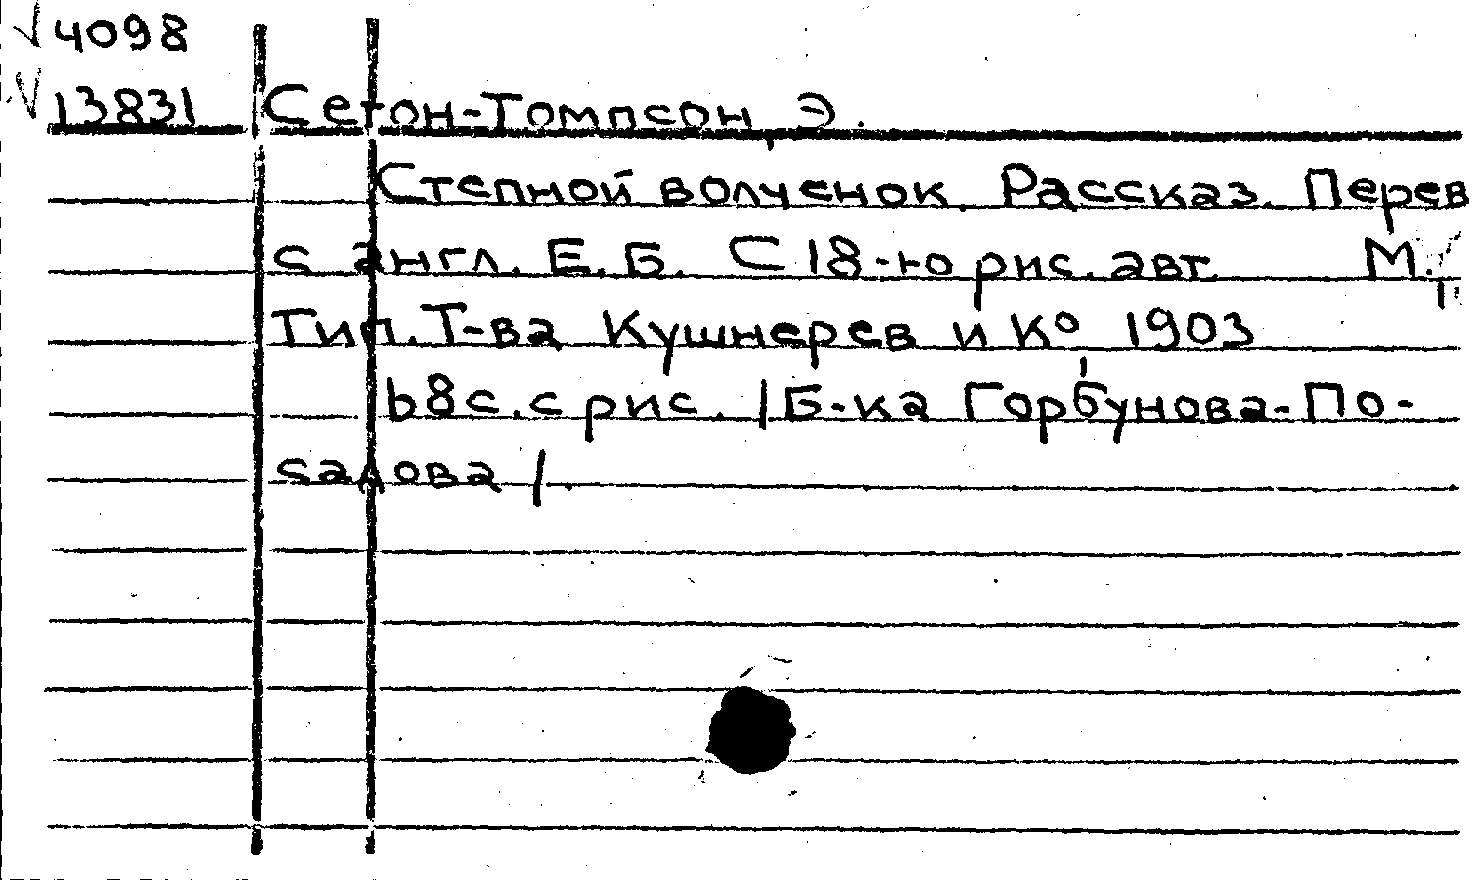 4098
13831 Сетон-Томпсон, Э.
Степной волченок. Рассказ. Перев
с англ. Е. Б. С 18-ю рис. авт. М.,
Тип. Т-ва Кушнерев и К°, 1903
68 с. с рис. /Б-ка Горбунова-По-
садова/.